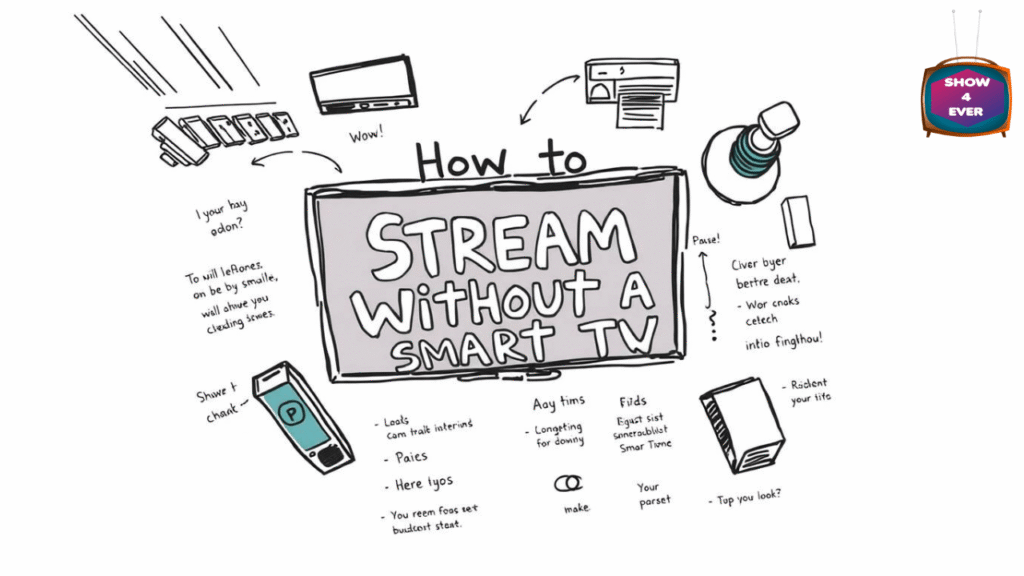 SHOW
4
EVER
Wow!
How to
STREAM
WITHOUT A
SMART TV
I your hay
odon?
To will leftones.
on be by smaile,
will ahwe you
cleading scwes.
Pause!
Civer byer
bertre deat.
- Wor cnoks
cetech
intio fingthou!
Shuwe t
chank -
- Loals
cam trait interins
- Paies
- Here tyos
- You reem foss set
buidcost steat.
P
Aay tims
- Longeting
for downy
make
Fids
Smar Time
Your
parset
- Ridlent
your tite
- Tup you look?